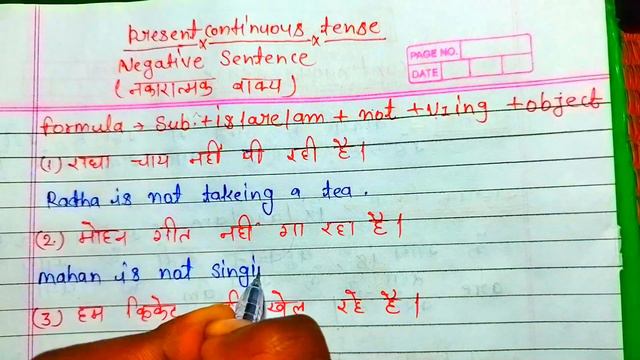 Present continuous tense
Negative Sentence
(नकारात्मक वाक्य)
PAGE NO.
DATE
formula → Sub. + is/are/am + not + V1 ing + object
(1) राधा चाय नहीं पी रही है।
Radha is not takeing a tea.
(2) मोहन गीत नहीं गा रहा है।
mahan is not singi
(3) हम क्रिकेट खेल रहे है।